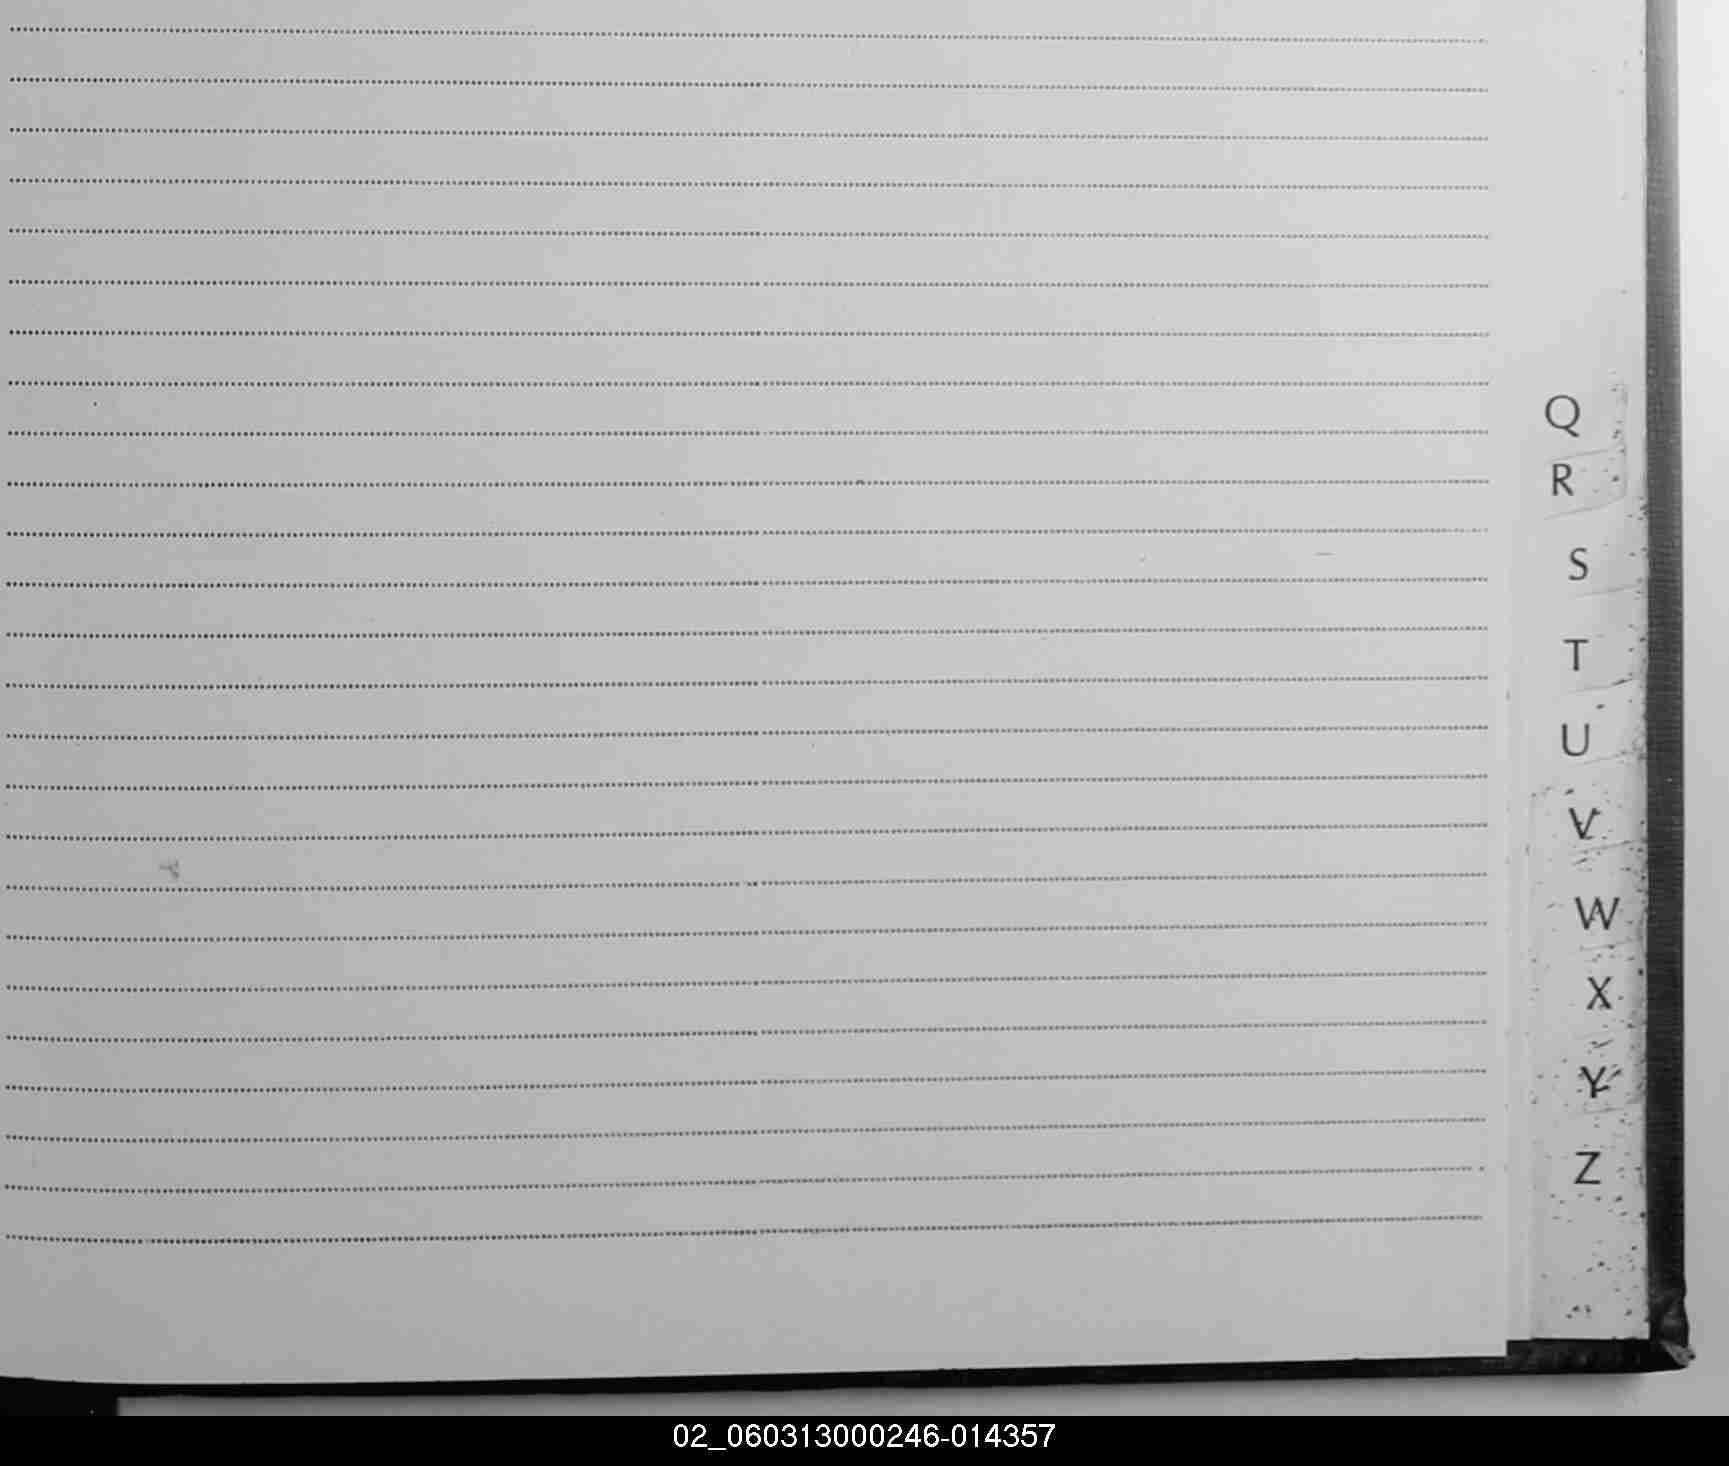 Q
R
S
T
U
V
W
X
Y
Z
02_060313000246-014357